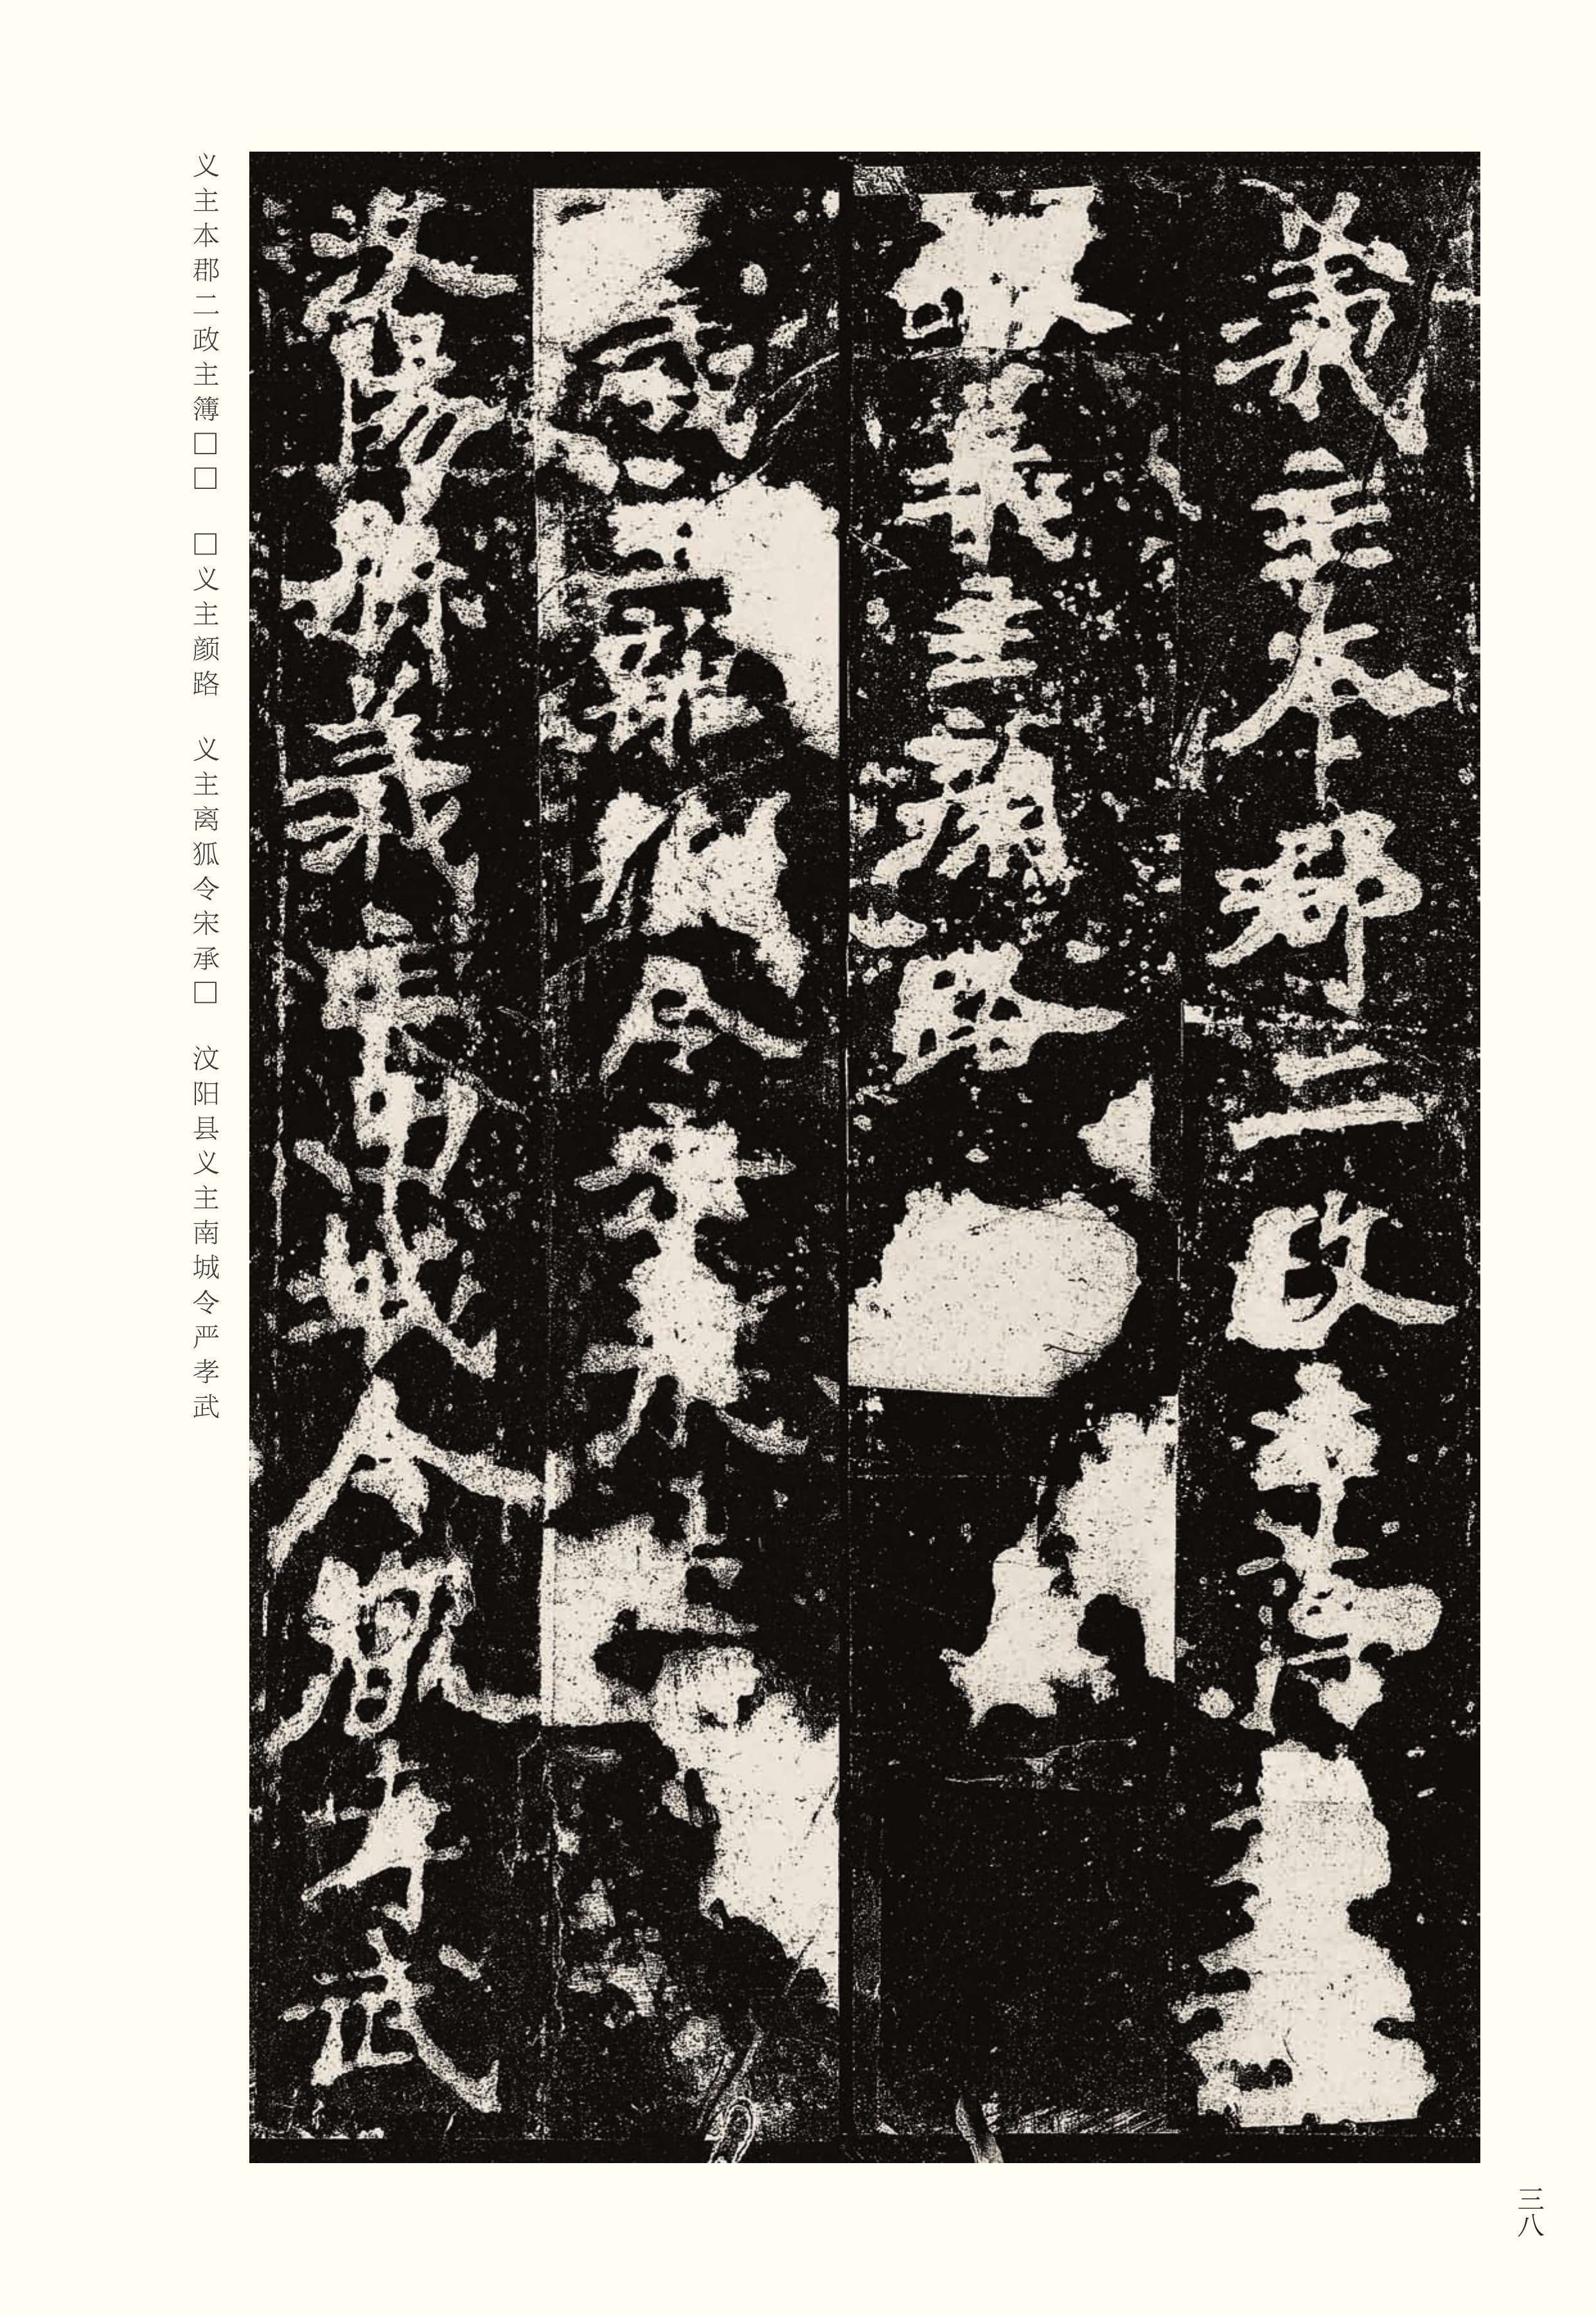 義主本郡二政
義主顏路
義主離狐令宋承
汶陽縣義主南城令嚴孝武
义主本郡二政主簿□□　□义主颜路　义主离狐令宋承□　汶阳县义主南城令严孝武
三八